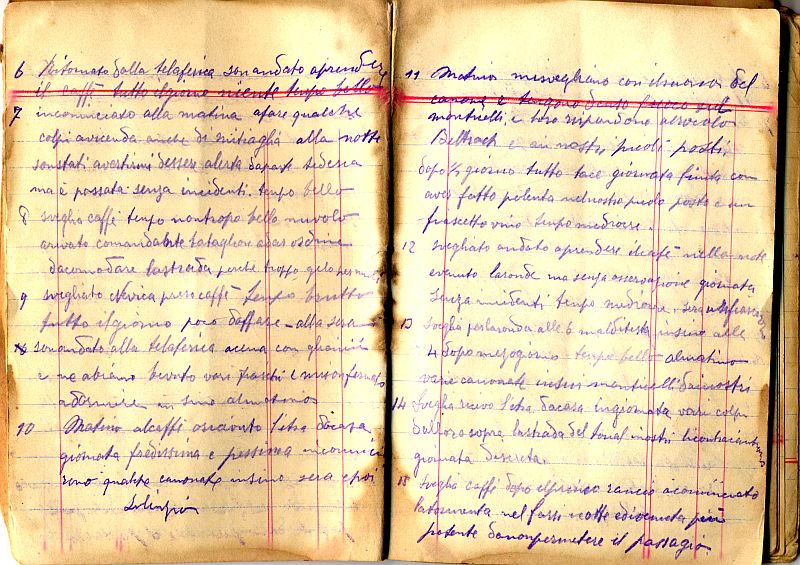 6 Ritornato dalla telaferica son andato aprendere
il caffè tutto il giorno niente tempo bello
7 incominciato alla matina afare qualche
colpi avicenda anche di mitraglia alla notte
son stati avertimi dessere alerta daparte tedesca
ma è passata senza incidenti. tempo bello
8 sveglia caffè tempo nontropo bello nuvolo
arivato comandante bataglione adar ordine
dacomodare lastrada perche troppo gelo per muli
9 svegliato Nevica preso caffè Tempo brutto
tutto ilgiorno poco daffare - alla sera
son andato alla telaferica acena con gliamici
e ne abiamo bevuto vari fiaschi e mison fermato
adormire in sino almatino
10 Matino alcaffè oricevuto letra dicasa
giornata fredissima e pessima incominciarono
qualche canonate insino sera e poi
silenzio
11 Matino misvegliano con ilsuono del
canone e tengono dento fuoco sul
monticelli, e loro rispondono alsocolo
e ai nostri picoli posti,
dopo ½ giorno tutto tace giornata finita con
aver fatto polenta nelnostro picolo posto e un
fiaschetto vino tempo mediocre.
12 svegliato andato aprendere ilcafè nella note
evenuto laronda ma senza osservazione giornata
senza incidenti tempo mediocre, sera
13 sveglia perlaronda alle 6 malditesta insino alle
4 dopo mezogiorno tempo bello almatino
varie canonate insui monticelli dainostri
14 Sveglia ricevo letra dacasa ingiornata vari colpi
sopra lastrada del tonal inostri licontracambiano
giornata descreta.
15 sveglia caffè dopo rancio acominciato
latormenta nel farsi notte edivenuta più
potente danonpermetere il passagio